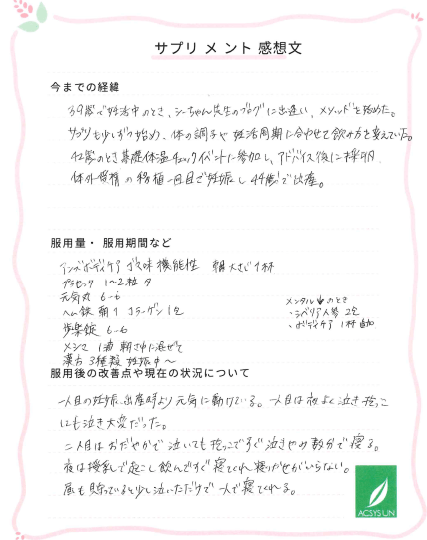 サプリメント感想文
今までの経緯
39歳で妊活中のとき、しーちゃん先生のブログに出逢い、メソッドを始めた。
サプリも少しずつ始め、体の調子や妊活周期に合わせて飲み方を変えていた。
42歳のとき基礎体温チェックイベントに参加し、アドバイス後に採卵
体外受精の移植一回目で妊娠し44歳で出産。
服用量・服用期間など
ボディケア ゴマ味 機能性 朝 大さじ1杯
プラセンタ 1〜2粒 夕
元気丸 6-6
ヘム鉄 朝1 コラーゲン1包
メンタル↓のとき
・シベリア人参 2包
歩楽錠 6-6
・ボディケア 1杯追加
メシマ 1 朝 に混ぜて
漢方 3種類 妊娠中〜
服用後の改善点や現在の状況について
一人目の妊娠、出産時より元気に動けている。一人目は夜よく泣き抱っこ
にも泣き大変だった。
二人目はおだやかで泣いても抱っこですぐ泣きやみ数分で寝る。
夜は授乳で起こし飲んですぐ寝てくれ寝かしつけがいらない。
昼も眠っていると少し泣いただけで一人で寝てくれる。
ACSYS UN